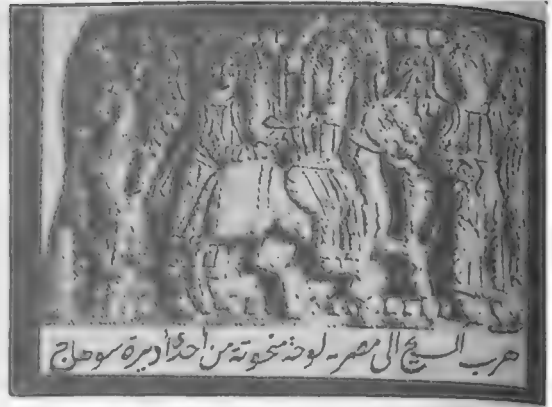 هرب المسيح الى مصر - لوحة منحوتة من أحد أديرة سوهاج